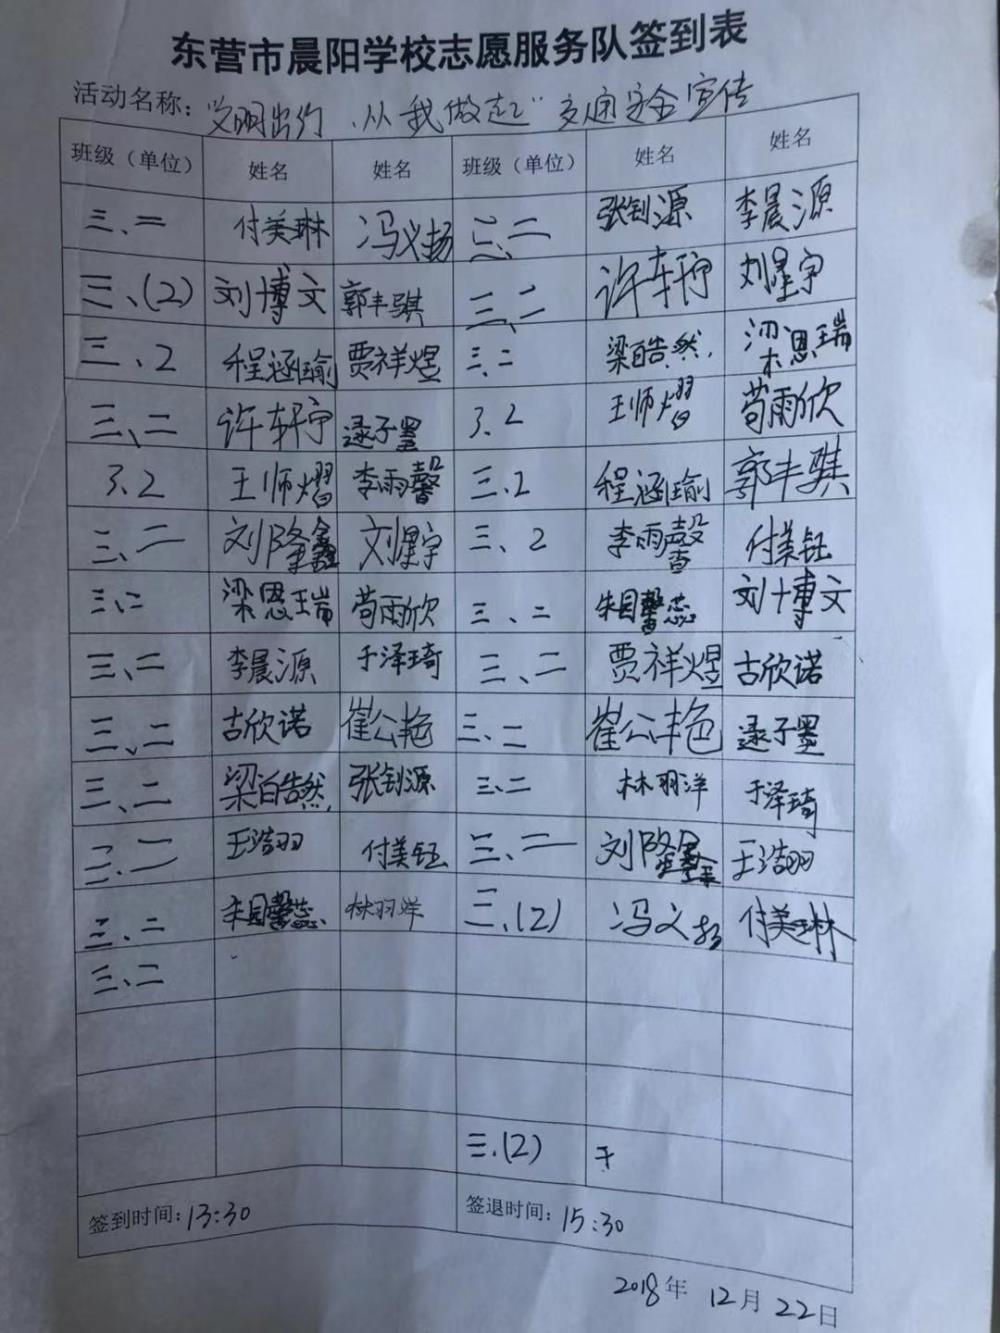 东营市晨阳学校志愿服务队签到表
活动名称："文明出行、从我做起" 交通安全宣传
班级（单位） 姓名 姓名 班级（单位） 姓名 姓名
三、二 付美琳 冯义扬 三、二 张钊源 李晨源
三、(2) 刘博文 郭丰骐 三、二 许轩宇 刘星宇
三、2 程涵瑜 贾祥煜 三、二 梁皓然 梁恩瑞
三、二 许轩宇 逯子墨 3、2 王师熠 荀雨欣
3、2 王师熠 李雨馨 三、2 程涵瑜 郭丰骐
三、二 刘隆鑫 刘星宇 三、2 李雨馨 付美钰
三、二 梁恩瑞 荀雨欣 三、二 朱国馨蕊 刘博文
三、二 李晨源 于泽琦 三、二 贾祥煜 古欣诺
三、二 古欣诺 崔公艳 三、二 崔公艳 逯子墨
三、二 梁皓然 张钊源 三、二 林羽洋 于泽琦
三、二 王浩羽 付美钰 三、二 刘隆鑫 王浩羽
三、二 朱国馨蕊 林羽洋 三、(2) 冯义扬 付美琳
三、二
三、(2) 于
签到时间：13:30 签退时间：15:30
2018年 12月 22日